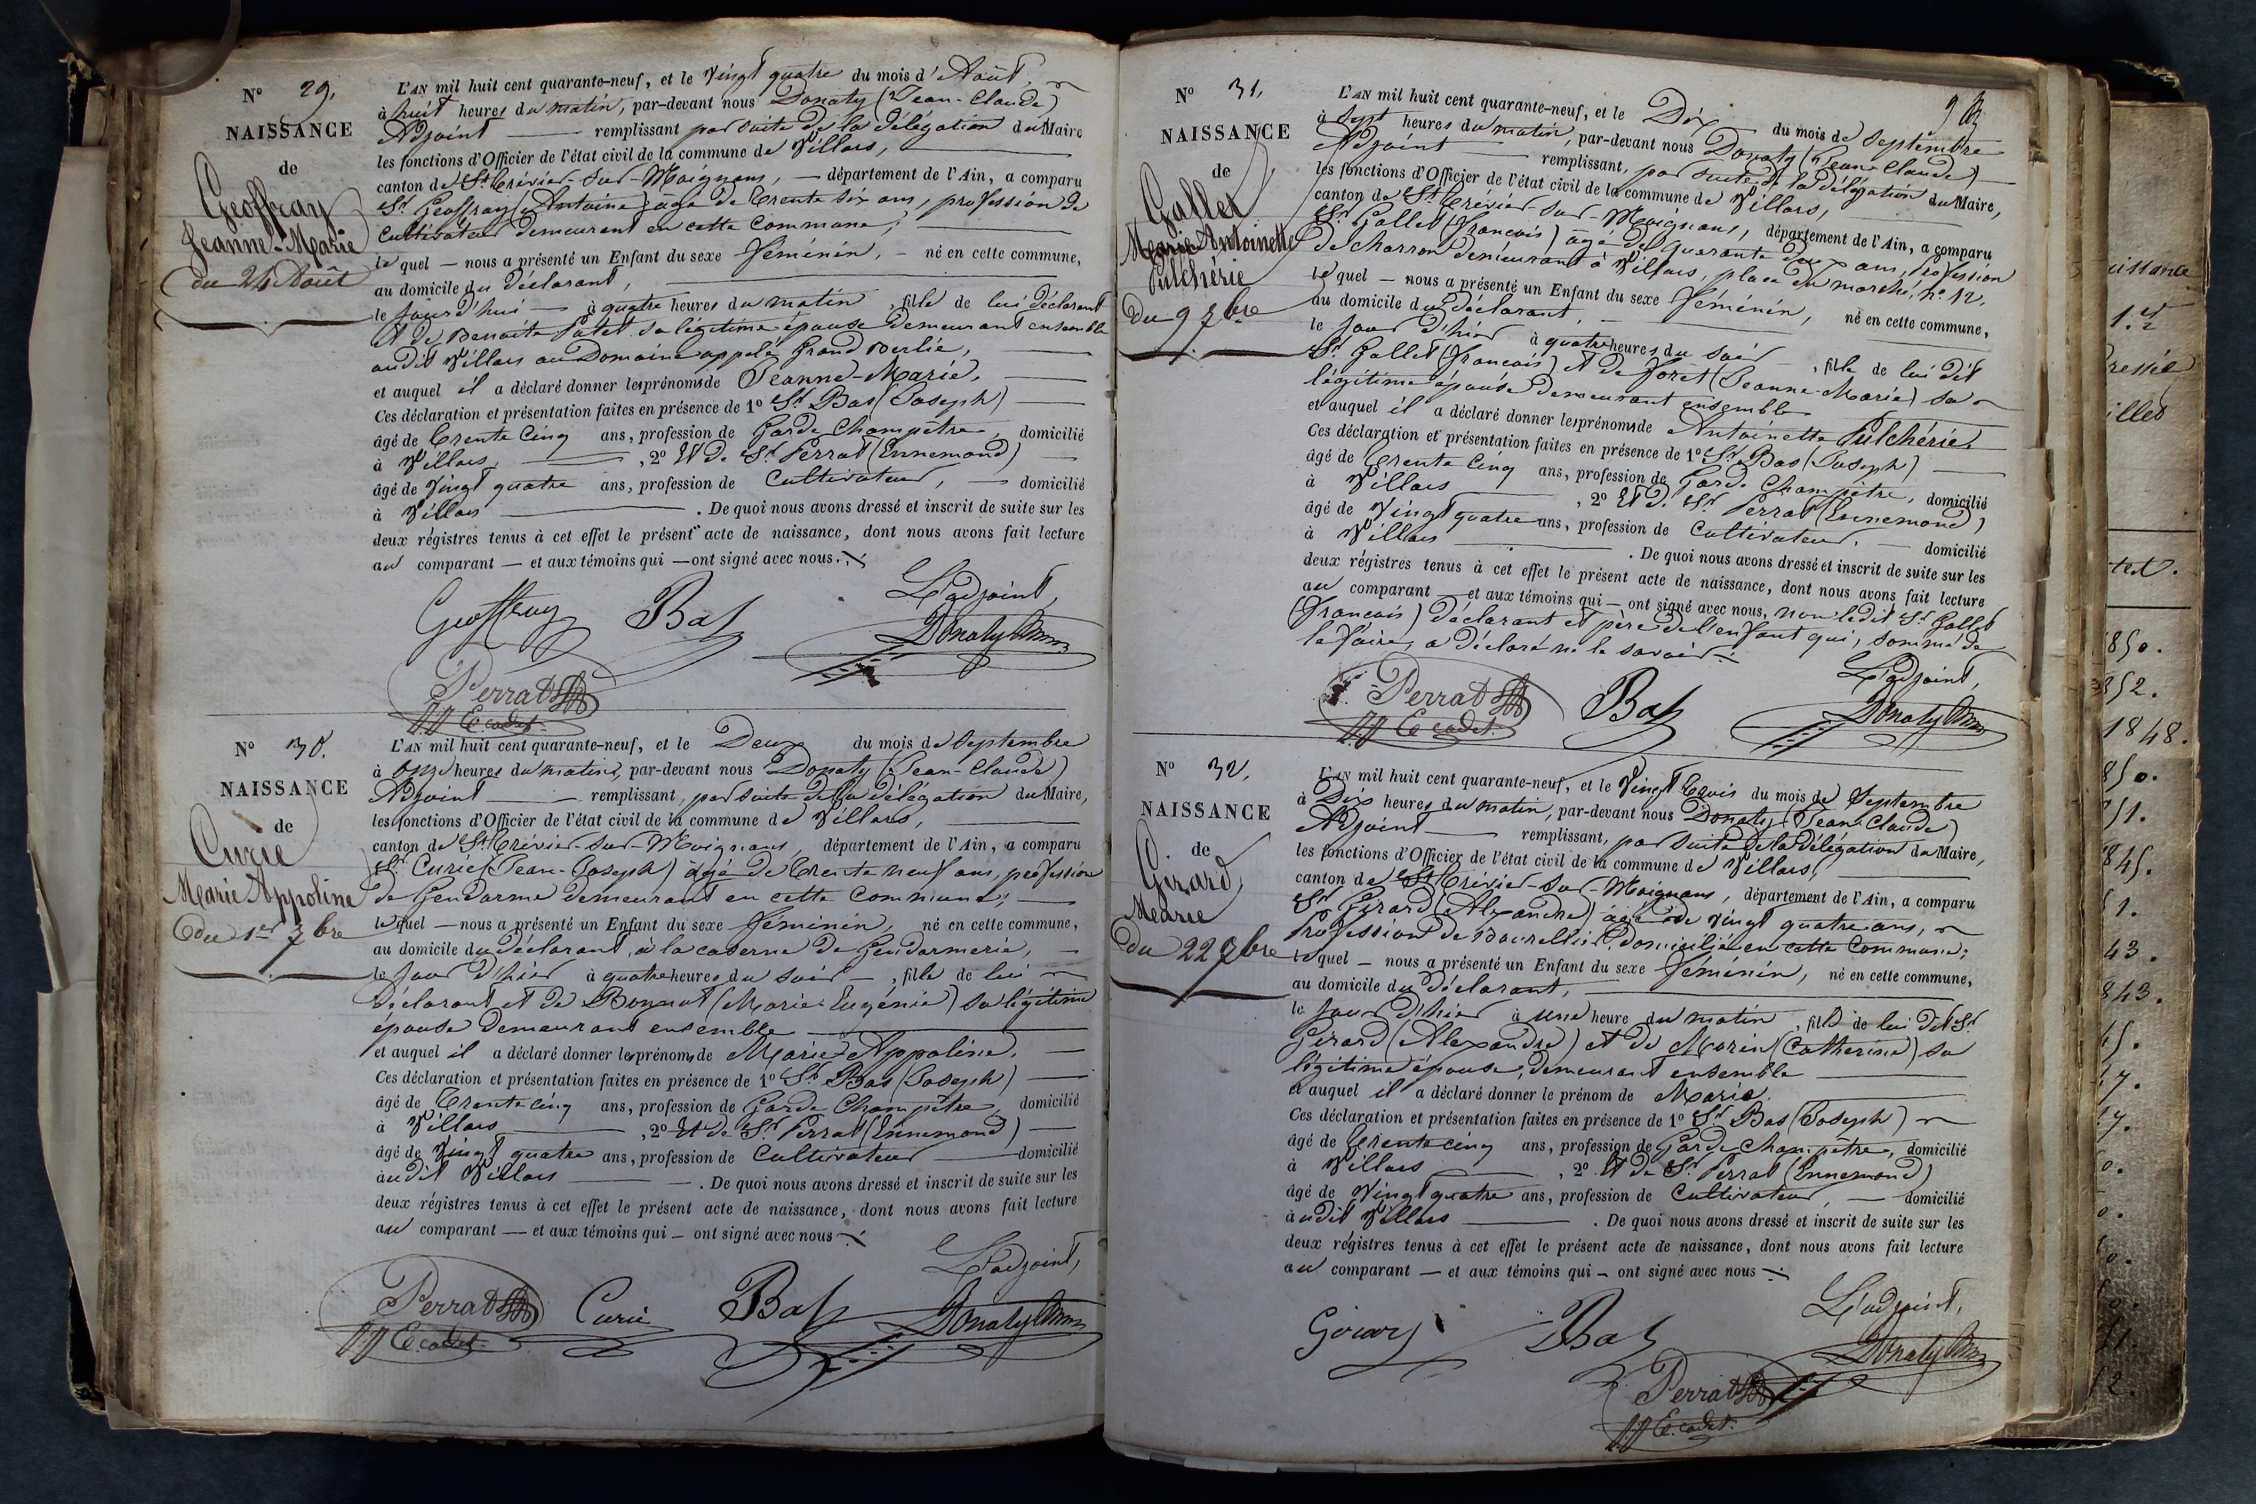 N° 29.
NAISSANCE
de
Geoffray
Jeanne-Marie
du 24 Août
L'AN mil huit cent quarante-neuf, et le Vingt quatre du mois d'Août
à huit heures du matin, par-devant nous Donaty (Jean-Claude)
Adjoint remplissant par suite de la délégation du Maire
les fonctions d'Officier de l'état civil de la commune de Villars,
canton de St Trévier-sur-Moignans, département de l'Ain, a comparu
Sr Geoffray (Antoine) âgé de trente six ans, profession de
Cultivateur demeurant en cette commune;
lequel nous a présenté un Enfant du sexe féminin, né en cette commune,
au domicile du déclarant,
le jour d'hui à quatre heures du matin, fille de lui déclarant
et de Benoite Patet sa légitime épouse demeurant ensemble
audit Villars au Domaine appelé Grand Berlie,
et auquel il a déclaré donner les prénoms de Jeanne-Marie.
Ces déclaration et présentation faites en présence de 1° Sr Bas (Joseph)
âgé de trente cinq ans, profession de Garde Champêtre, domicilié
à Villars, 2° Et de Sr Perrat (Ennemond)
âgé de Vingt quatre ans, profession de Cultivateur, domicilié
à Villars. De quoi nous avons dressé et inscrit de suite sur les
deux régistres tenus à cet effet le présent acte de naissance, dont nous avons fait lecture
au comparant et aux témoins qui ont signé avec nous.
L'adjoint,
Geoffray Bas Donaty
Perrat
E. cadet
N° 30.
NAISSANCE
de
Curie
Marie Appoline
du 1er 7bre
L'AN mil huit cent quarante-neuf, et le Deux du mois de Septembre
à onze heures du matin, par-devant nous Donaty (Jean-Claude)
Adjoint remplissant, par suite de la délégation du Maire,
les fonctions d'Officier de l'état civil de la commune de Villars,
canton de St Trévier-sur-Moignans, département de l'Ain, a comparu
Sr Curie (Jean-Joseph) âgé de trente neuf ans, profession
de Gendarme demeurant en cette commune;
lequel nous a présenté un Enfant du sexe féminin, né en cette commune,
au domicile du déclarant, à la caserne de Gendarmerie,
le jour d'hier à quatre heures du soir, fille de lui
déclarant et de Bonnat (Marie-Eugénie) sa légitime
épouse demeurant ensemble
et auquel il a déclaré donner les prénoms de Marie-Appoline.
Ces déclaration et présentation faites en présence de 1° Sr Bas (Joseph)
âgé de trente cinq ans, profession de Garde Champêtre, domicilié
à Villars, 2° Et de Sr Perrat (Ennemond)
âgé de Vingt quatre ans, profession de Cultivateur domicilié
audit Villars. De quoi nous avons dressé et inscrit de suite sur les
deux régistres tenus à cet effet le présent acte de naissance, dont nous avons fait lecture
au comparant et aux témoins qui ont signé avec nous
L'adjoint,
Perrat Curie Bas Donaty
E. cadet
N° 31.
NAISSANCE
de
Gallet
Marie Antoinette
Pulchérie
du 9 7bre
L'AN mil huit cent quarante-neuf, et le Dix du mois de Septembre
à Sept heures du matin, par-devant nous Donaty (Jean-Claude)
Adjoint remplissant, par suite de la délégation du Maire,
les fonctions d'Officier de l'état civil de la commune de Villars,
canton de St Trévier-sur-Moignans, département de l'Ain, a comparu
Sr Gallet (François) âgé de quarante deux ans, profession
de charron demeurant à Villars, place du marché, n° 12,
lequel nous a présenté un Enfant du sexe féminin, né en cette commune,
au domicile du déclarant,
le jour d'hier à quatre heures du soir, fille de lui dit
Sr Gallet (François) et de Foret (Jeanne-Marie) sa
légitime épouse demeurant ensemble
et auquel il a déclaré donner les prénoms de Antoinette Pulchérie.
Ces déclaration et présentation faites en présence de 1° Sr Bas (Joseph)
âgé de trente cinq ans, profession de Garde Champêtre, domicilié
à Villars, 2° Et de Sr Perrat (Ennemond)
âgé de Vingt quatre ans, profession de Cultivateur, domicilié
à Villars. De quoi nous avons dressé et inscrit de suite sur les
deux régistres tenus à cet effet le présent acte de naissance, dont nous avons fait lecture
au comparant et aux témoins qui ont signé avec nous, non ledit Sr Gallet
(François) déclarant et père de l'enfant qui, sommé de
le faire, a déclaré ne le savoir
L'adjoint,
Perrat Bas Donaty
E. cadet
N° 32.
NAISSANCE
de
Girard
Marie
du 22 7bre
L'AN mil huit cent quarante-neuf, et le Vingt trois du mois de Septembre
à Dix heures du matin, par-devant nous Donaty (Jean-Claude)
Adjoint remplissant, par suite de la délégation du Maire,
les fonctions d'Officier de l'état civil de la commune de Villars,
canton de St Trévier-sur-Moignans, département de l'Ain, a comparu
Sr Girard (Alexandre) âgé de vingt quatre ans,
Profession de Bourrelier, domicilié en cette commune;
lequel nous a présenté un Enfant du sexe féminin, né en cette commune,
au domicile du déclarant,
le jour d'hier à une heure du matin, fille de lui dit Sr
Girard (Alexandre) et de Morin (Catherine) sa
légitime épouse, demeurant ensemble
et auquel il a déclaré donner le prénom de Marie.
Ces déclaration et présentation faites en présence de 1° Sr Bas (Joseph)
âgé de trente cinq ans, profession de Garde Champêtre, domicilié
à Villars, 2° Et de Sr Perrat (Ennemond)
âgé de Vingt quatre ans, profession de Cultivateur, domicilié
audit Villars. De quoi nous avons dressé et inscrit de suite sur les
deux régistres tenus à cet effet le présent acte de naissance, dont nous avons fait lecture
au comparant et aux témoins qui ont signé avec nous
L'adjoint,
Girard Bas Donaty
Perrat
E. cadet
1850.
1852.
1848.